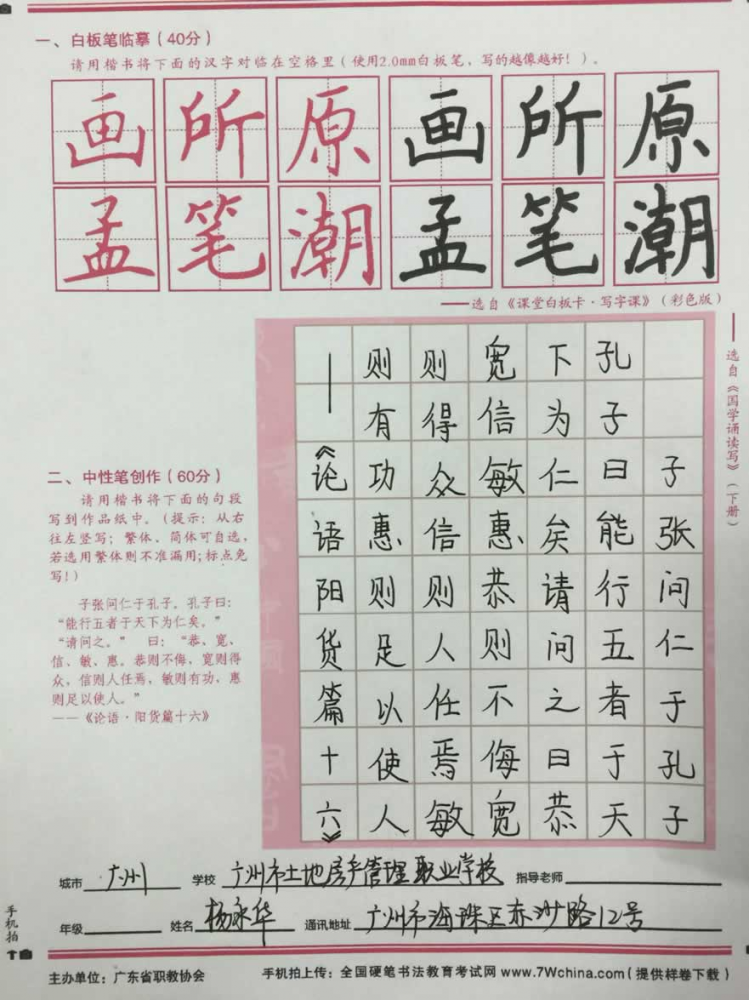 一、白板笔临摹（40分）
请用楷书将下面的汉字对临在空格里（使用2.0mm白板笔，写的越像越好！）。
画所原画所原
孟笔潮孟笔潮
——选自《课堂白板卡·写字课》（彩色版）
——选自《国学诵读写》（下册）
二、中性笔创作（60分）
请用楷书将下面的句段
写到作品纸中。（提示：从右
往左竖写；繁体、简体可自选，
若选用繁体则不准漏用；标点免
写！）
子张问仁于孔子。孔子曰：
“能行五者于天下为仁矣。”
“请问之。” 曰：“恭、宽、
信、敏、惠。恭则不侮，宽则得
众，信则人任焉，敏则有功，惠
则足以使人。”
——《论语·阳货篇十六》
子张问仁于孔子
孔子曰能行五者于天
下为仁矣请问之曰恭
宽信敏惠恭则不侮宽
则得众信则人任焉敏
则有功惠则足以使人
——《论语阳货篇十六》
城市 广州 学校 广州市土地房产管理职业学校 指导老师
年级 姓名 杨永华 通讯地址 广州市海珠区赤沙路12号
手机拍
主办单位：广东省职教协会 手机拍上传：全国硬笔书法教育考试网 www.7Wchina.com（提供样卷下载）